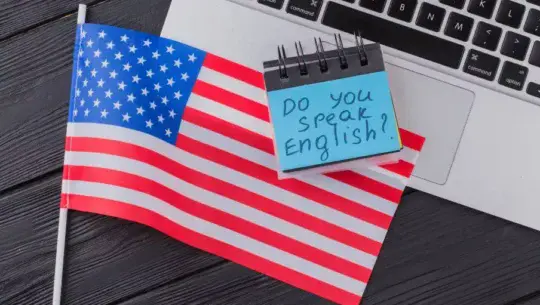 Do you
speak
English?
command
option
B N M
K L
command
option